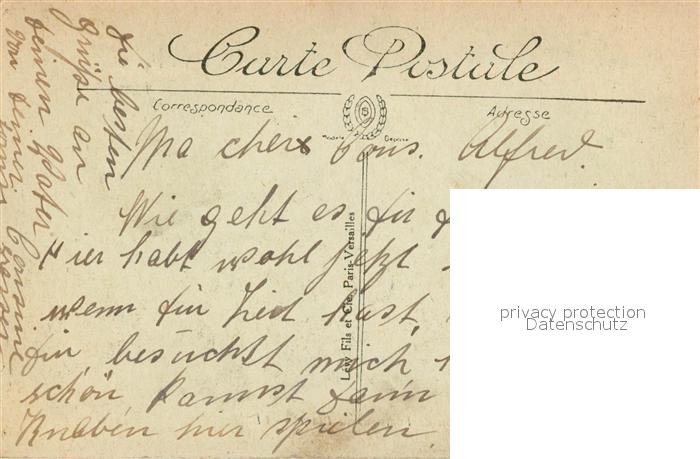 Carte Postale
Correspondance
Adresse
Ma cher Cous. Alfred.
Wie geht es dir
Hier habt wohl jetzt
wenn du Zeit hast,
du besuchst mich
schön kannst dann
Knaben hier spielen.
Lévy Fils et Cie, Paris-Versailles
die besten
Grüße an
deinen Vater
von deiner
Cousine
privacy protection
Datenschutz